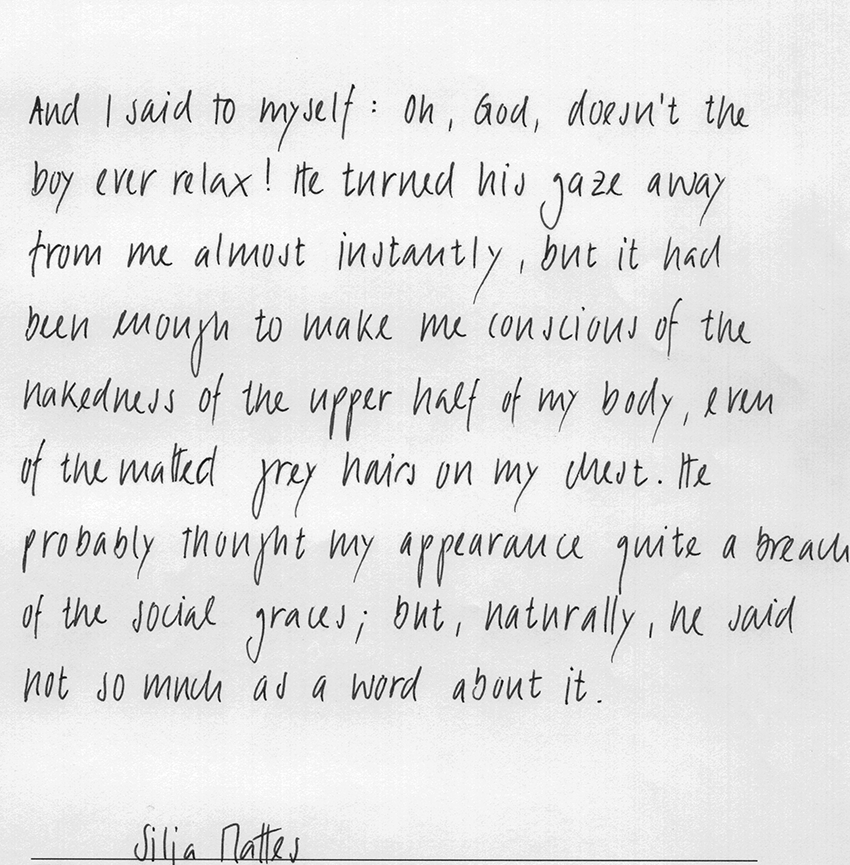 And I said to myself: Oh, God, doesn't the
boy ever relax! He turned his gaze away
from me almost instantly, but it had
been enough to make me conscious of the
nakedness of the upper half of my body, even
of the matted grey hairs on my chest. He
probably thought my appearance quite a breach
of the social graces; but, naturally, he said
not so much as a word about it.
Silja Mattes